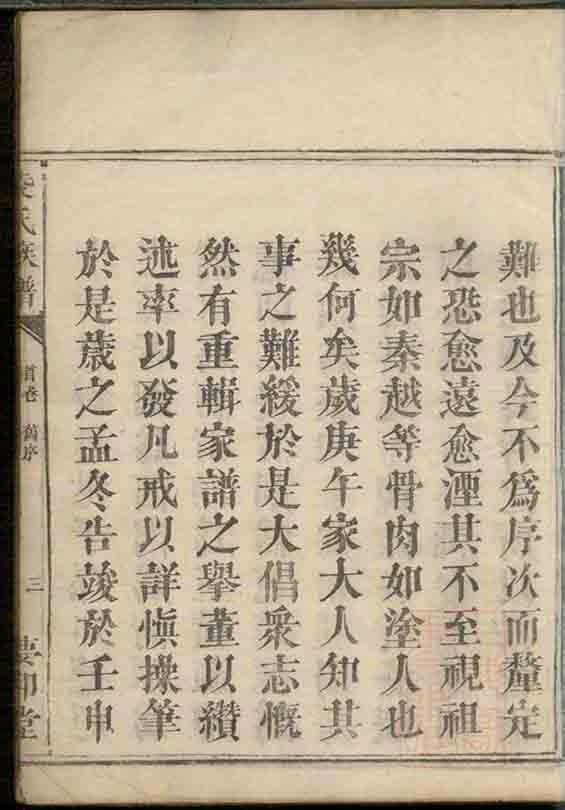 難也及今不爲序次而釐定
之恐愈遠愈湮其不至視祖
宗如秦越等骨肉如塗人也
幾何矣歲庚午家大人知其
事之難緩於是大倡衆志慨
然有重輯家譜之舉董以纘
述率以發凡戒以詳愼操筆
於是歲之孟冬告竣於壬申
氏族譜
首卷 舊序
三
堂